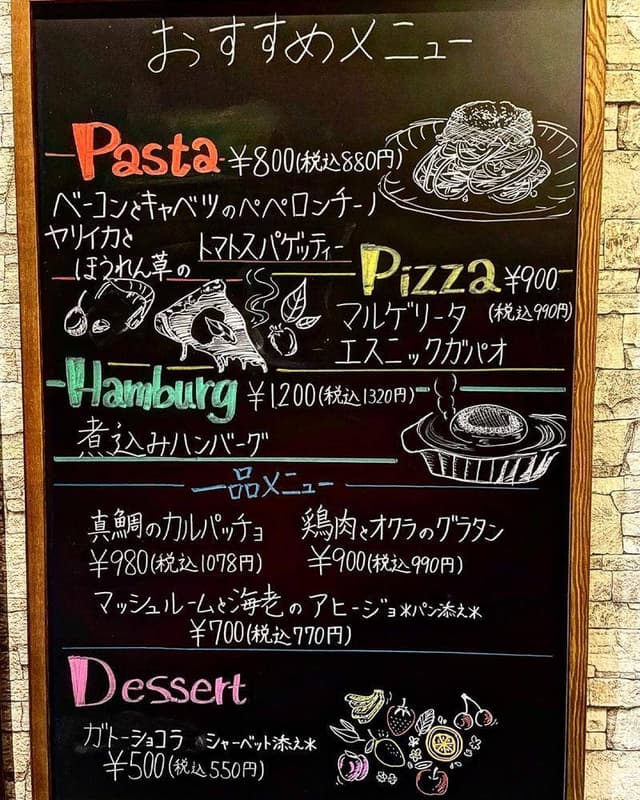 おすすめメニュー
Pasta ¥800(税込880円)
ベーコンとキャベツのペペロンチーノ
ヤリイカと
ほうれん草の トマトスパゲッティー
Pizza ¥900
マルゲリータ (税込990円)
エスニックガパオ
Hamburg ¥1200(税込1320円)
煮込みハンバーグ
一品メニュー
真鯛のカルパッチョ 鶏肉とオクラのグラタン
¥980(税込1078円) ¥900(税込990円)
マッシュルームと海老のアヒージョ*パン添え*
¥700(税込770円)
Dessert
ガトーショコラ *シャーベット添え*
¥500(税込550円)